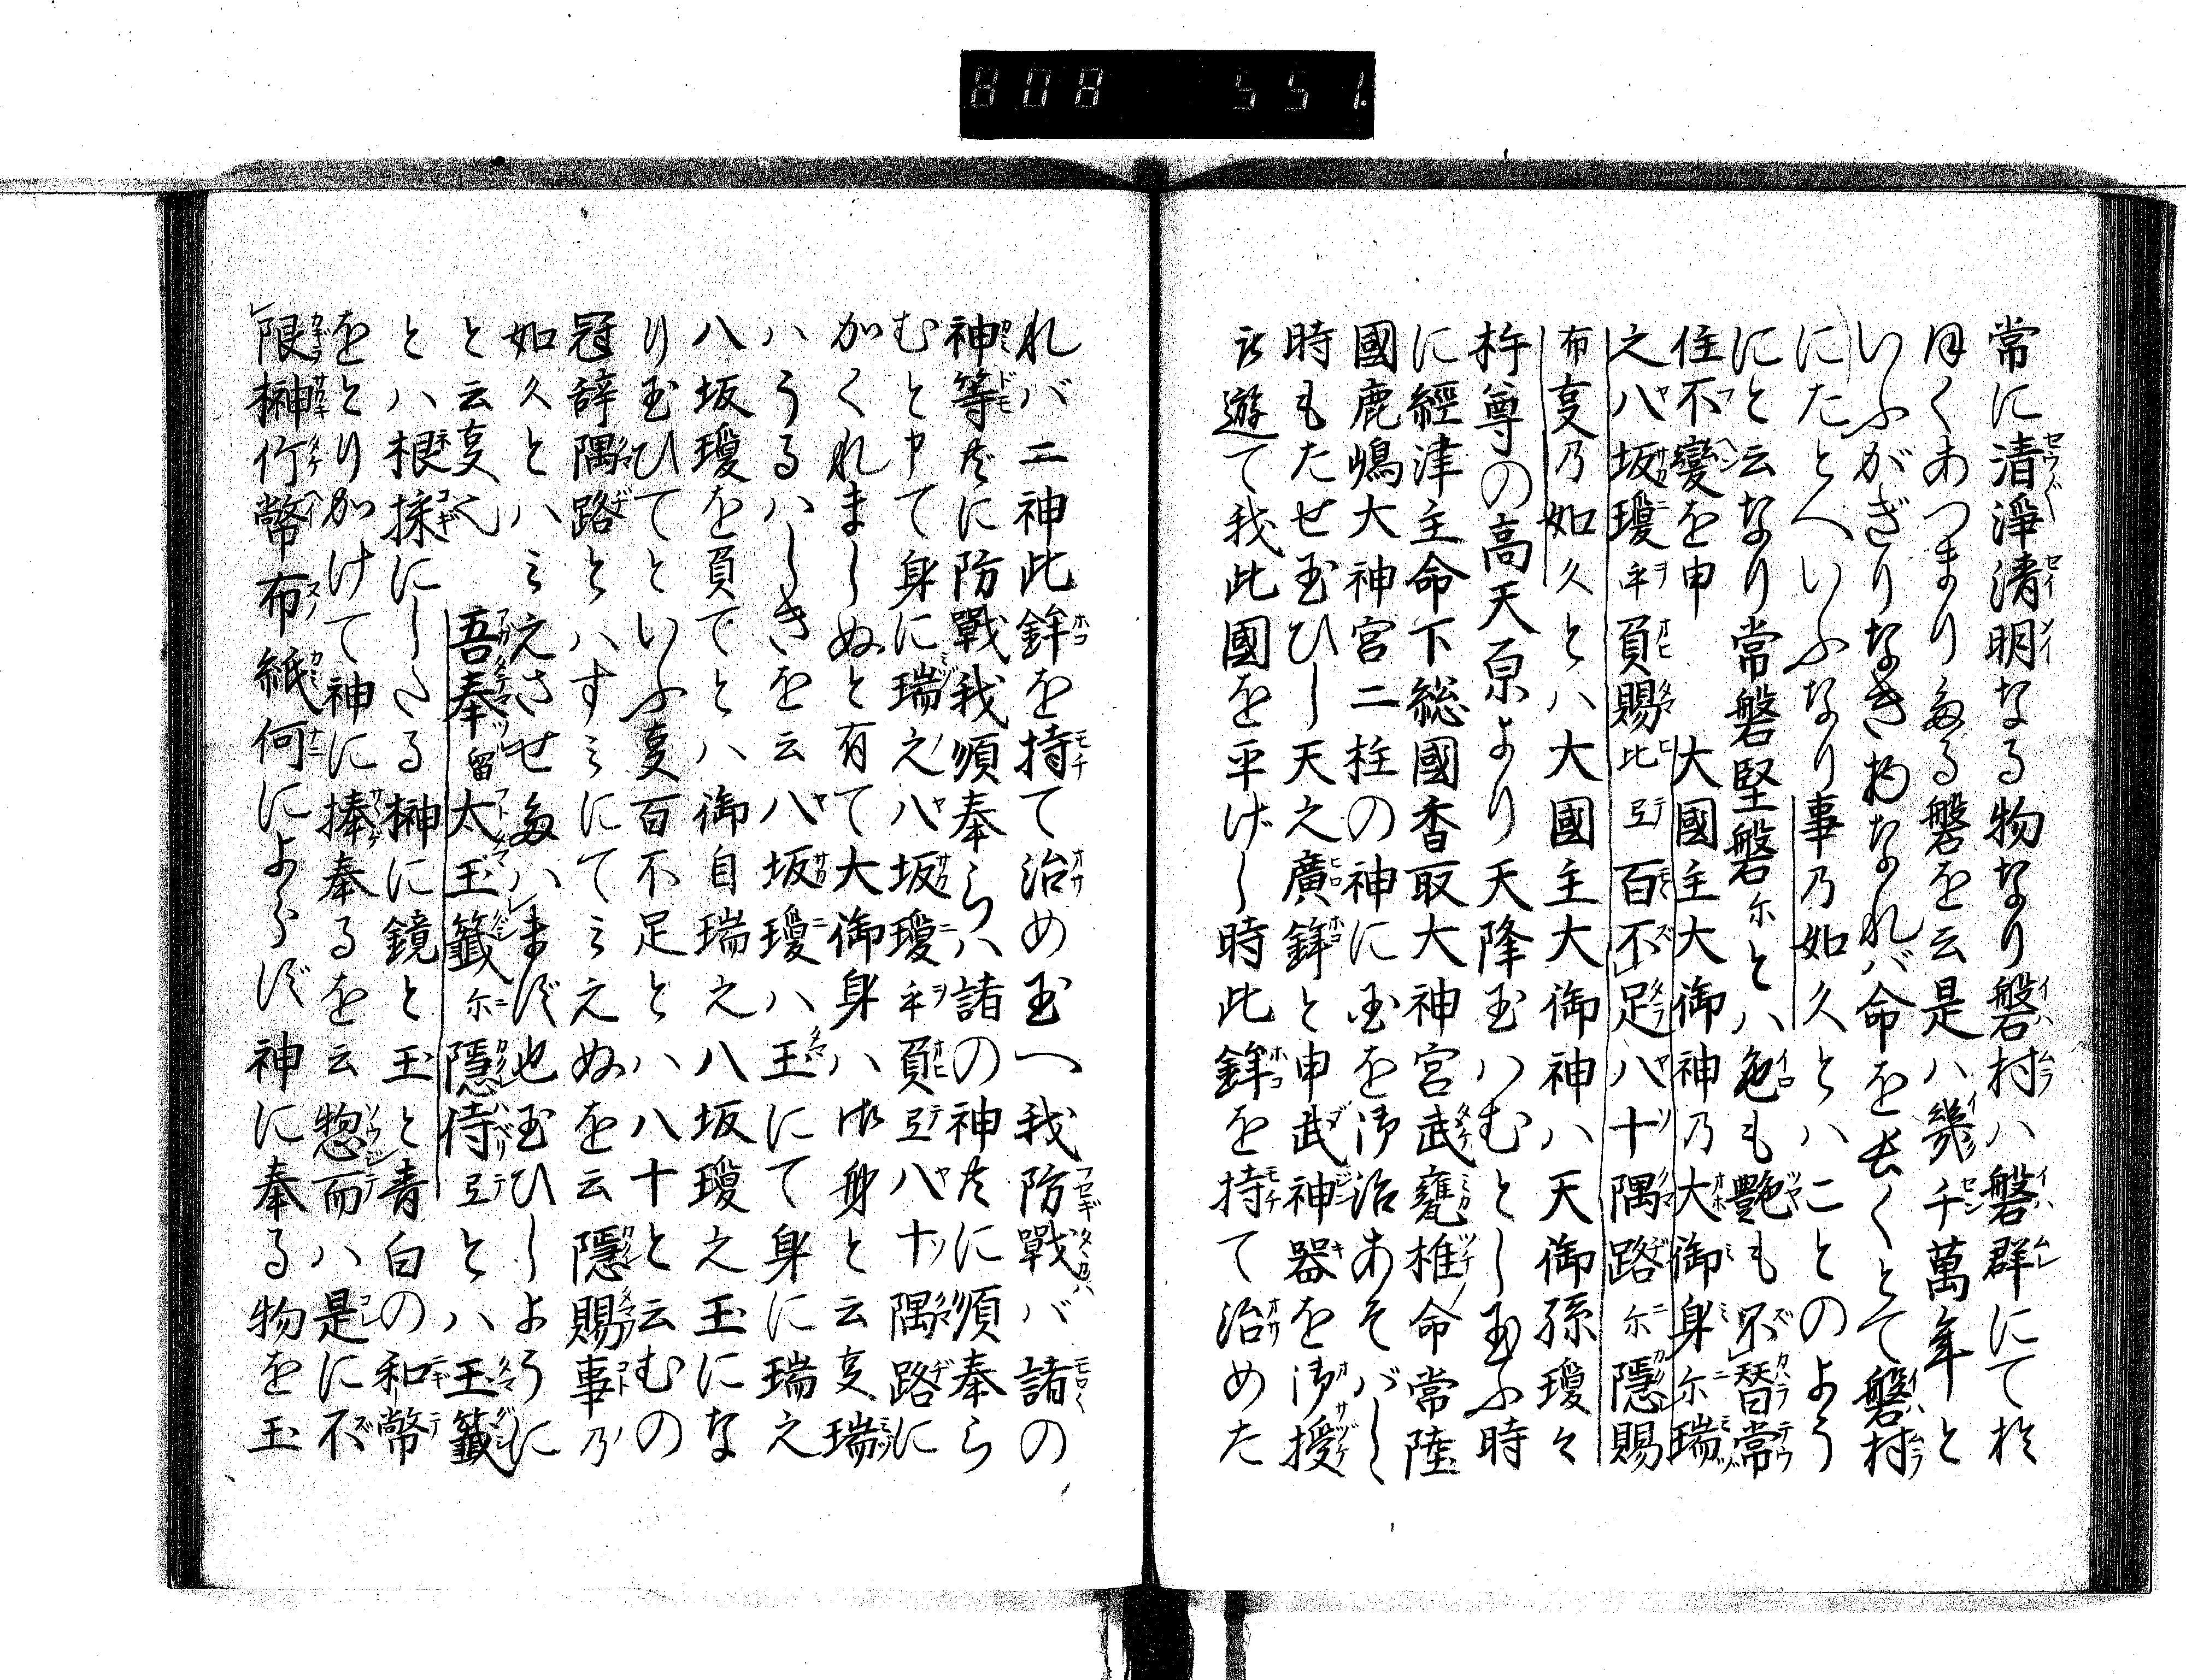 808 551.
常に清淨清明なる物なり磐村ハ磐群にて於
同くあつまりゐる磐を云是ハ幾千萬年と
いふがぎりなき物なれバ命を長くとて磐村
にたとへいふなり事乃如久とハことのよう
にと云なり常磐堅磐尓とハ色も艶も不替常
住不變を申 大國主大御神乃大御身尓瑞
之八坂瓊乎負賜比弖百不足八十隅路尓隱賜
布㕝乃如久とハ大國主大御神ハ天御孫瓊々
杵尊の高天原より天降玉ハむとし玉ふ時
に經津主命下総國香取大神宮武甕椎命常陸
國鹿嶋大神宮二柱の神に国を御治あそバし
時もたせ玉ひし天之廣鉾と申武神器を御授
被遊て我此國を平げし時此鉾を持て治めた
れバ二神此鉾を持て治め玉へ我防戰バ諸の
神等共に防戰我順奉らハ諸の神共に順奉ら
むと申て身に瑞之八坂瓊乎負弖八十隅路に
かくれましぬと有て大御身ハ御身と云㕝瑞
ハうるハしきを云八坂瓊ハ玉にて身に瑞之
八坂瓊を負てとハ御自瑞之八坂瓊之玉にな
り玉ひてといふ㕝百不足とハ八十と云むの
冠辞隅路とハすみにてみえぬを云隱賜事乃
如久とハみえさせ給ハまず也玉ひしように
と云㕝也 吾奉留太玉籤尓隱侍弖とハ玉籤
とハ根採にしたる榊に鏡と玉と青白の和幣
をとりかけて神に捧奉るを云惣而ハ是に不
限榊竹幣布紙何によらず神に奉る物を玉